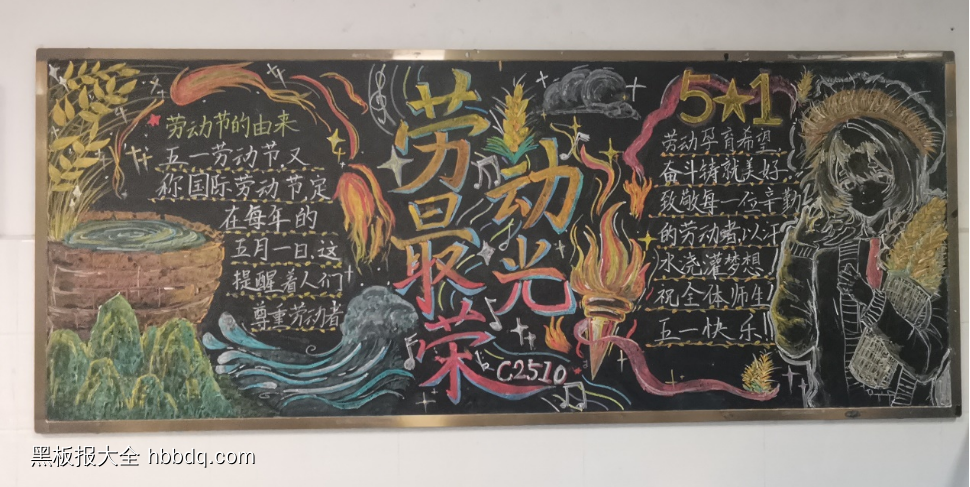 劳动节的由来
五一劳动节又
称国际劳动节,定
在每年的
五月一日.这
提醒着人们
尊重劳动者
劳动
最光
荣
C2510
5★1
劳动孕育希望,
奋斗铸就美好.
致敬每一位辛勤
的劳动者,以汗
水浇灌梦想,
祝全体师生
五一快乐!!
黑板报大全 hbbdq.com